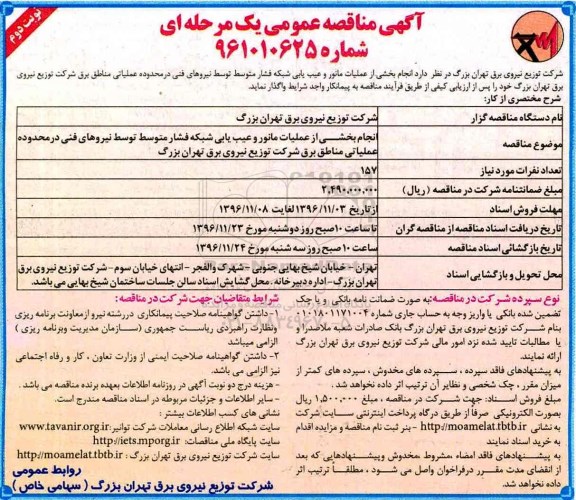 نوبت دوم
آگهی مناقصه عمومی یک مرحله ای
شماره ۹۶۱۰۱۰۶۲۵
شرکت توزیع نیروی برق تهران بزرگ در نظر دارد انجام بخشی از عملیات مانور و عیب یابی شبکه فشار متوسط توسط نیروهای فنی درمحدوده عملیاتی مناطق برق شرکت توزیع نیروی
برق تهران بزرگ خود را پس از ارزیابی کیفی از طریق فرآیند مناقصه به پیمانکار واجد شرایط واگذار نماید.
شرح مختصری از کار:
نام دستگاه مناقصه گزار
شرکت توزیع نیروی برق تهران بزرگ
موضوع مناقصه
انجام بخشی از عملیات مانور و عیب یابی شبکه فشار متوسط توسط نیروهای فنی درمحدوده
عملیاتی مناطق برق شرکت توزیع نیروی برق تهران بزرگ
تعداد نفرات مورد نیاز
۱۵۷
مبلغ ضمانتنامه شرکت در مناقصه (ریال)
۲,۴۹۰,۰۰۰,۰۰۰
مهلت فروش اسناد
از تاریخ ۱۳۹۶/۱۱/۰۳ لغایت ۱۳۹۶/۱۱/۰۸
تاریخ دریافت اسناد مناقصه از مناقصه گران
تا ساعت ۱۰ صبح روز دوشنبه مورخ ۱۳۹۶/۱۱/۲۳
تاریخ بازگشائی اسناد مناقصه
ساعت ۱۰ صبح روز سه شنبه مورخ ۱۳۹۶/۱۱/۲۴
محل تحویل و بازگشایی اسناد
تهران - خیابان شیخ بهایی جنوبی - شهرک والفجر - انتهای خیابان سوم - شرکت توزیع نیروی برق
تهران بزرگ - اداره دبیرخانه . محل گشایش اسناد سالن جلسات ساختمان شیخ بهایی می باشد.
نوع سپرده شرکت در مناقصه: به صورت ضمانت نامه بانکی و یا چک
تضمین شده بانکی یا واریز وجه به حساب جاری شماره ۰۱۰۱۸۰۱۱۷۱۰۰۴
بنام شرکت توزیع نیروی برق تهران بزرگ بانک صادرات شعبه ملاصدرا و
یا مطالبات تایید شده نزد امور مالی شرکت توزیع نیروی برق تهران بزرگ
ارائه نمایند.
به پیشنهادهای فاقد سپرده ، سپرده های مخدوش ، سپرده های کمتر از
میزان مقرر ، چک شخصی و نظایر آن ترتیب اثر داده نخواهد شد .
مبلغ فروش اسناد: جهت شرکت در مناقصه ، مبلغ ۱,۵۰۰,۰۰۰ ریال
بصورت الکترونیکی صرفاً از طریق درگاه پرداخت اینترنتی سایت شرکت
به نشانی http://moamelat.tbtb.ir - بنر ثبت نام مناقصه و مزایده اقدام
به خرید اسناد نمایند
به پیشنهادهای فاقد امضاء ،مشروط ،مخدوش وپیشنهادهایی که بعد
از انقضای مدت مقرر درفراخوان واصل می شود ، مطلقاً ترتیب اثر
داده نخواهد شد.
شرایط متقاضیان جهت شرکت در مناقصه:
۱- داشتن گواهینامه صلاحیت پیمانکاری دررشته نیرو ازمعاونت برنامه ریزی
ونظارت راهبردی ریاست جمهوری (سازمان مدیریت وبرنامه ریزی )
الزامی میباشد
۲- داشتن گواهینامه صلاحیت ایمنی از وزارت تعاون ، کار و رفاه اجتماعی
نیز الزامی می باشد.
- هزینه درج دو نوبت آگهی در روزنامه اطلاعات بعهده برنده مناقصه می باشد .
- سایر اطلاعات و جزئیات مربوطه در اسناد مناقصه مندرج است.
نشانی های کسب اطلاعات بیشتر :
سایت شبکه اطلاع رسانی معاملات شرکت توانیر: www.tavanir.org.ir
سایت پایگاه ملی مناقصات: http://iets.mporg.ir
سایت شرکت توزیع نیروی برق تهران بزرگ : http://moamelat.tbtb.ir
روابط عمومی
شرکت توزیع نیروی برق تهران بزرگ ( سهامی خاص )